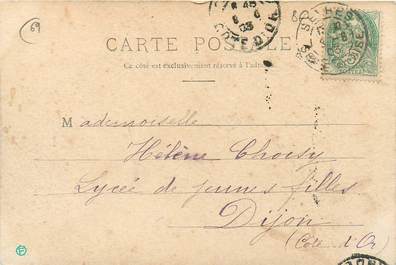 69
COTE D'OR
CARTE POSTALE
Ce côté est exclusivement réservé à l'adresse
Mademoiselle
Hélène Choisy
Lycée de jeunes filles
Dijon
(Côte d'Or)
F